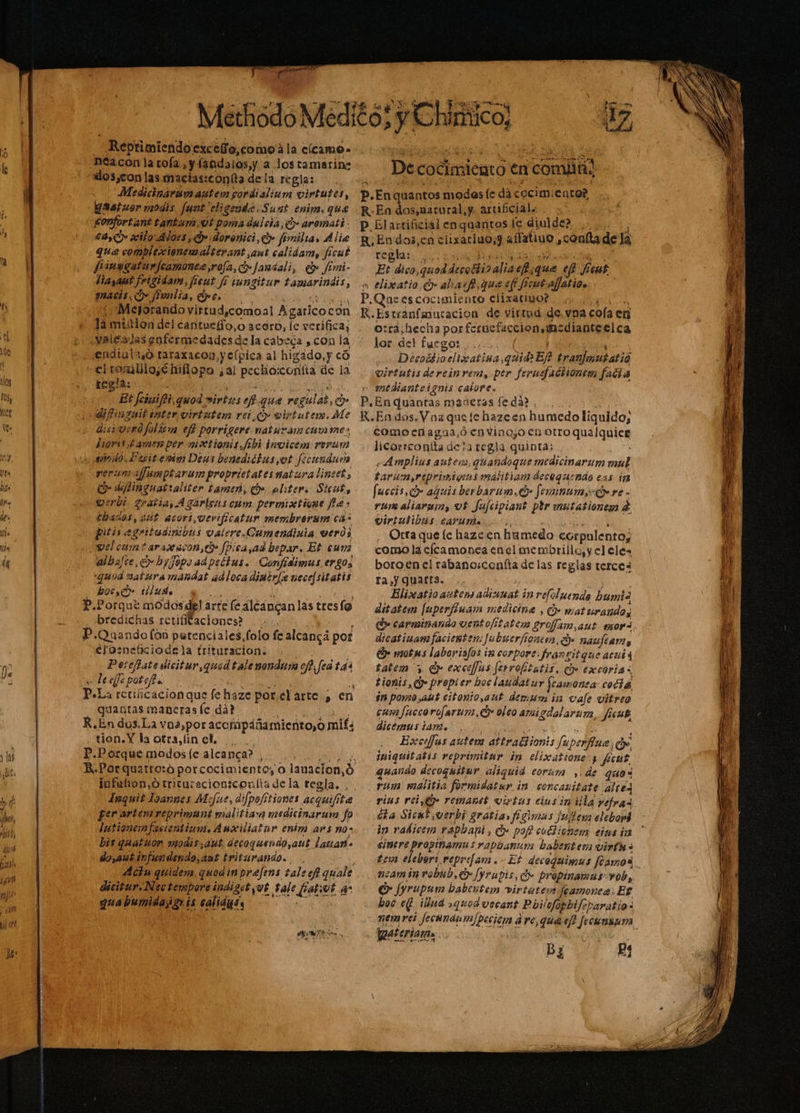 Methodo Medico, y Chimico,
Reprimiendo excesso, como à la escamo-
nea con la rosa, y sandalos, y a los tamarin-
dos, con las macias: consta de la regla:
Medicinarum autem cordialium virtutes,
quatuor modis sunt eligendæ. Sunt enim, quæ
confortant tantum, ut poma dulcia, & aromati-
ca, & xilo Aloes, & doronici, & similia. Aliæ
quæ complexionem alterant, aut calidam, sicut
si iungatur scamonea, rosa, & sandali, & simi-
lia, aut frigidam, sicut si iungitur tamarindis,
macis, & similia, &c.
Mejorando virtud, como al Agarico con
la miullon del cantuesso, o acoro, se verifica;
vale a las enfermedades de la cabeça, con la
endiuia, ò taraxacon, y espica al higado, y cõ
el tomillo, è hissopo, al pecho: consta de la
regla:
Et sciuisti, quod virtus est quæ regulat, &
distinguit inter virtutem rei, & virtutem. Me
dius verò solum est porrigere naturam cum me-
lioris, tamen per mixtionis, sibi invicem rerum
modo. Fuit enim Deus benedictus, ut secundum
rerum assumptarum proprietates natura lineet,
& distinguat: aliter tamen, & aliter. Sicut,
verbi gratia, Agarigus cum permixtione stæ-
chados, aut acori, verificatur membrorum ca-
pitis ægritudinibus valere. Cum endiuia verò;
vel cum taraxacon, & spica, ad hepar. Et cum
albasce, & hyssopo ad pectus. Confidimus ergo,
quod natura mandat ad loca diuersa necessitatis
hoc, & illud.
P. Porque modos del arte se alcançan las tres so
bredichas rectificaciones?
P. Quando son potenciales, solo se alcança por
el beneficio de la trituracion.
Potestate dicitur, quod tale nondum est, sed ta-
le esse potest.
P. La rectificacion que se haze por el arte, en
quantas maneras se dà?
R. En dos. La vna, por acompañamiento, ò mix-
tion. Y la otra, sin el.
P. Porque modos se alcança?
R. Por quatro: ò por cocimiento, o lauacion, ò
infusion, ò trituracion: consta de la regla.
Inquit Ioannes Mesue, dispositiones acquisitæ
per artem reprimunt malitiam medicinarum so
lutionem facientium. Auxiliatur enim ars no-
bis quatuor modis, aut decoquendo, aut lauan-
do, aut infundendo, aut triturando.
Actu quidem, quod in præsens tale est quale
dicitur. Nec tempore indiget, ut tale fiat, ut a-
qua humida, ignis calidus,
17
De cocimiento en comũn.
P. En quantos modos se dà cocimiento?
R. En dos, natural, y artificial.
P. El artificial en quantos se diuide?
R. En dos, en elixatiuo, y assatiuo, consta de la
regla:
Et dico, quod decoctio alia est, quæ est sicut
elixatio, & alia est, quæ est sicut assatio.
P. Que es cocimiento elixatiuo?
R. Es transmutacion de virtud de vna cosa en
otra, hecha por seruefaccion, mediante el ca
lor del fuego:
Decoctio elixatiua, quid? Est transmutatio
virtutis de re in rem, per feruefactionem facta
mediante ignis calore.
P. En quantas maneras se dà?
R. En dos. Vna que se haze en humedo liquido,
como en agua, ò en vino, ò en otro qualquier
licor: consta de la regla quinta:
Amplius autem, quandoque medicinarum mul
tarum, reprimimus malitiam decoquendo eas in
succis, & aquis herbarum, & seminum, & re-
rum aliarum, ut suscipiant per mutationem à
virtutibus earum.
Otra que se haze en humedo corpulento,
como la escamonea en el membrillo, y el ele-
boro en el rabano: consta de las reglas terce-
ra, y quarta.
Elixatio autem adiuuat in resoluendo humidi
ditatem superfluam medicinæ, & maturando,
& carminando ventositatem grossam, aut mor-
dicatiuam facientem: subuersionem, & nauseam,
& motus laboriosos in corpore: frangitque acui-
tatem, & excessus feruositatis, & excoria-
tionis, & propter hoc laudatur scamonea cocta,
in pomo, aut citonio, aut demum in vase vitreo
cum succo rosarum, & oleo amigdalarum, sicut
dicemus iam.
Excessus autem attractionis superfluæ, &
iniquitatis reprimitur in elixatione, sicut
quando decoquitur aliquid eorum, de quo-
rum malitia formidatur in concauitate alte-
rius rei, & remanet virtus eius in illa refra-
cta. Sicut, verbi gratia, figimus sustem elebori
in radicem raphani, & post coctionem eius in
cinere propinamus raphanum habentem virtu-
tem elebori repressam. Et decoquimus scamo-
neam in robub, & syrupis, & propinamus rob,
& syrupum habentem virtutem scamoneæ. Et
hoc est illud, quod vocant Philosophi separatio-
nem rei secundum speciem à re, quæ est secundum
materiam.
B3
P.